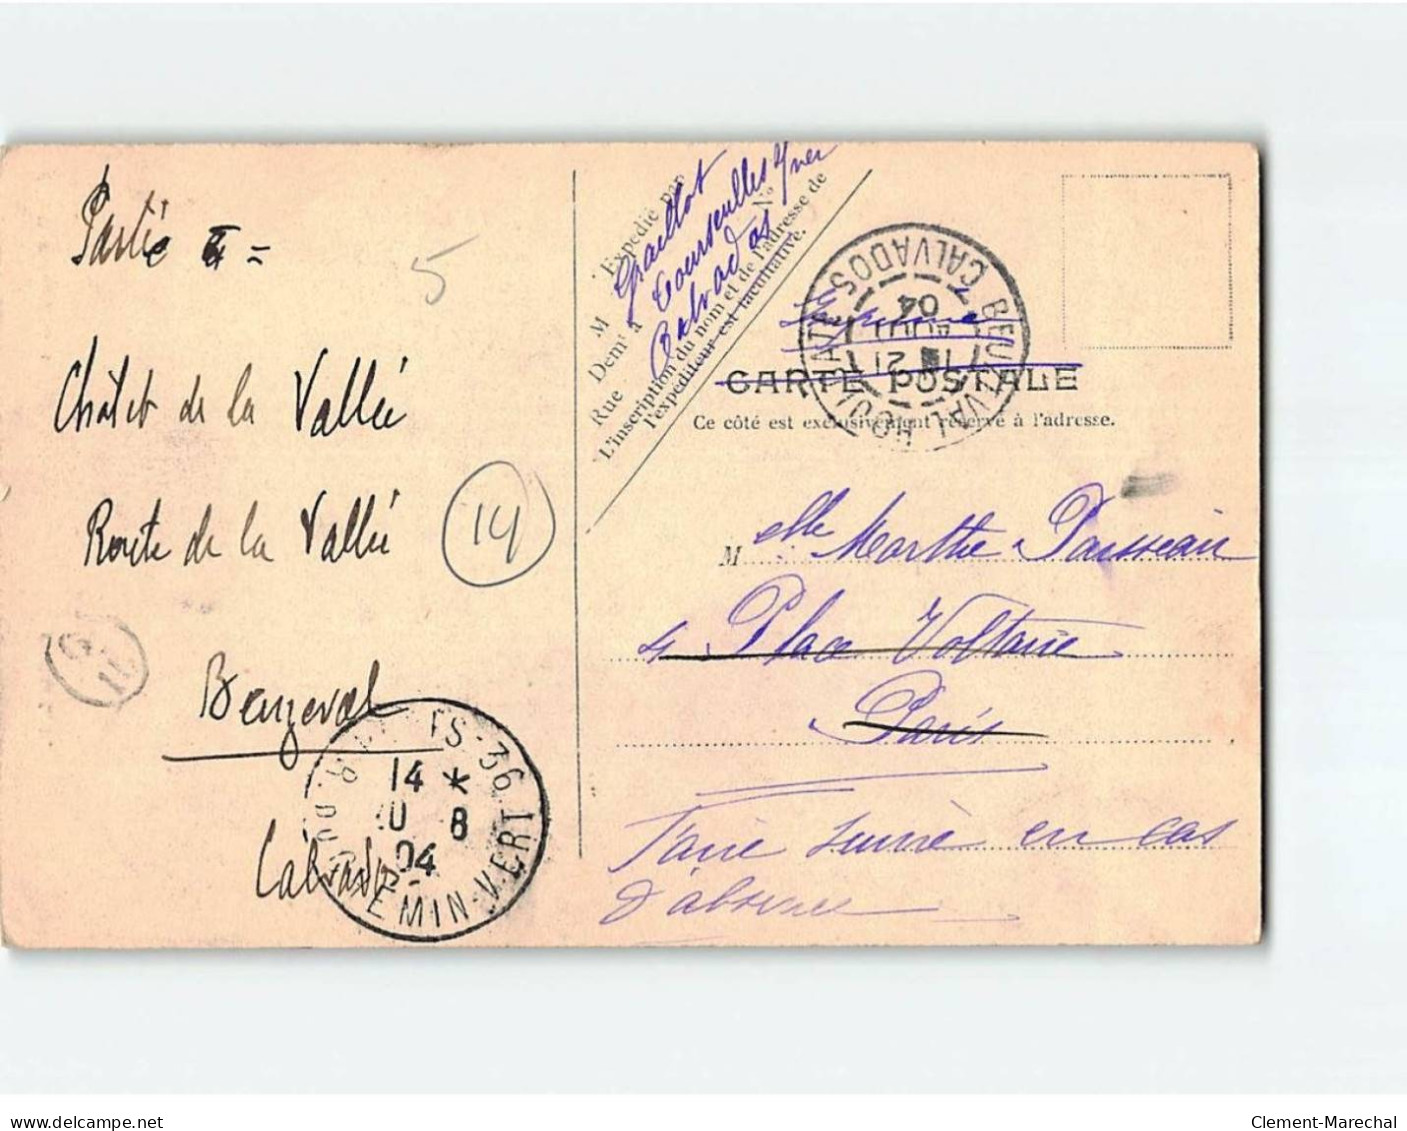 Partie à =
Châlet de la Vallée
Route de la Vallée
Beuzeval
Calvados
5
14
PARIS-36
14 *
10 8
04
R. DU CHEMIN-VERT
Expédié par
M Graillot
Demt à Courseulles s/mer
Rue Calvados N°
L'inscription du nom et de l'adresse de
l'expéditeur est facultative.
BEUZEVAL HOULGATE
CALVADOS
11 21
AOUT
04
CARTE POSTALE
Ce côté est exclusivement réservé à l'adresse.
Melle Marthe Pausseau
4 Place Voltaire
Paris
Faire suivre en cas
d'absence
Clement-Marechal